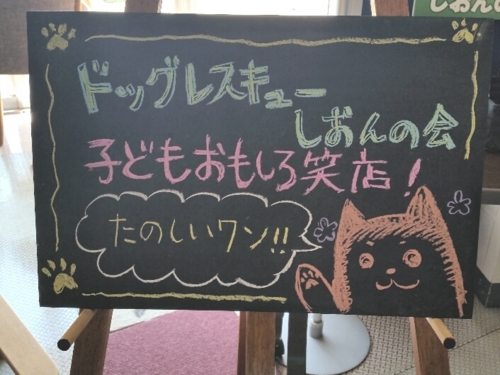 ドッグレスキュー
しおんの会
子どもおもしろ笑店!
たのしいワン!!